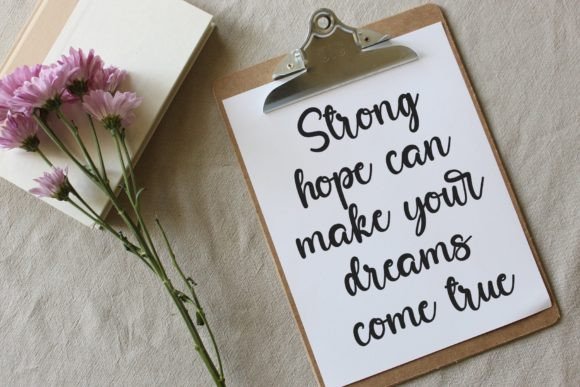 Strong
hope can
make your
dreams
come true